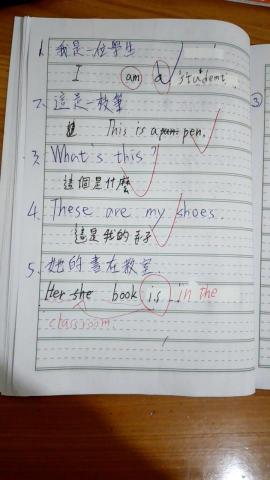 1. 我是一位學生
I am a student.
2. 這是一枝筆
This is a pen.
3. What's this?
這個是什麼
4. These are my shoes.
這是我的
5. 她的書在教室
Her she book is in the
classroom.
③